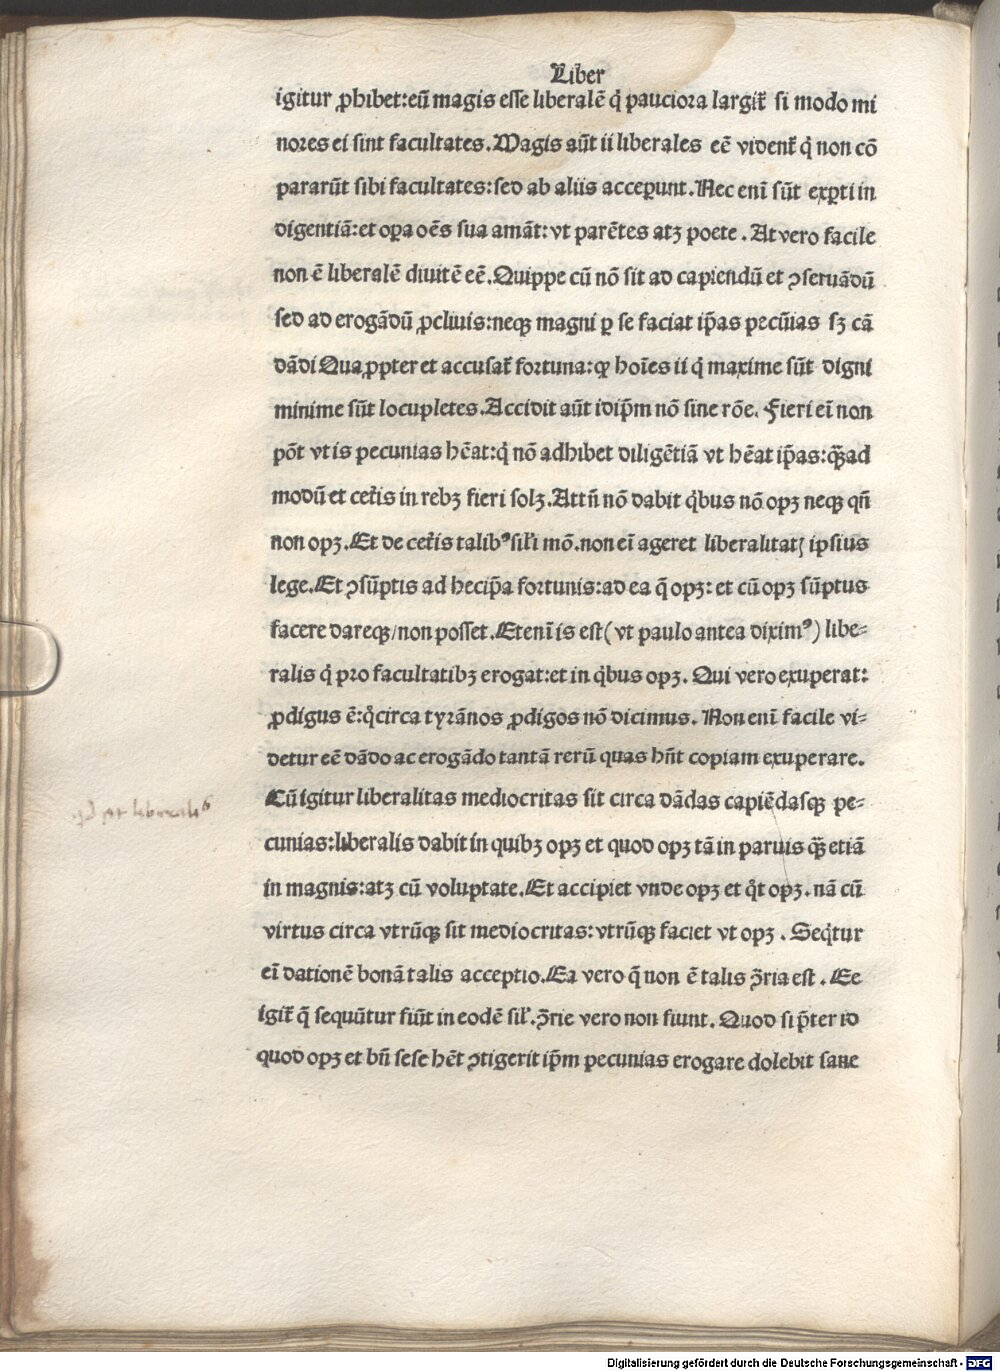 Liber
igitur ꝓhibet:eū magis esse liberalē q̇ pauciora largit᷑ si modo mi
nores ei sint facultates.Magis aūt ii liberales eē vident᷑ q̇ non cō
pararūt sibi facultates:sed ab aliis acceperunt.Nec enī sūt exꝑti in
digentiā:et oꝑa oēs sua amāt:vt parētes atꝫ poete.At vero facile
non ē liberalē diuitē eē.Quippe cū nō sit ad capiendū et ꝯseruādū
sed ad erogādū ꝓcliuis:neqꝫ magni ꝑ se faciat ip̄as pecūias sꝫ cā
dādi Quaꝓpter et accusat᷑ fortuna:ꝙ hoīes ii q̇ maxime sūt digni
minime sūt locupletes.Accidit aūt idip̄m nō sine rōe. Fieri eī non
pōt vt is pecunias hēat:q̇ nō adhibet diligētiā vt hēat ip̄as:qꝫad
modū et cet᷑is in rebꝫ fieri solꝫ.Attn̄ nō dabit q̇bus nō opꝫ neqꝫ qn̄
non opꝫ.Et de cet᷑is talibꝰ sil̄i mō.non eī ageret liberalitatꝭ ipsius
lege.Et ꝯsūptis ad hec ip̄a fortunis:ad ea q̄ opꝫ: et cū opꝫ sūptus
facere dareqꝫ/non posset.Etenī is est(vt paulo antea diximꝰ) libe⸗
ralis q̇ pro facultatibꝫ erogat:et in q̇bus opꝫ. Qui vero exuperat:
ꝓdigus ē:q̇circa tyrānos ꝓdigos nō dicimus. Non enī facile vi⸗
detur eē dādo ac erogādo tantā rerū quas hn̄t copiam exuperare.
Cū igitur liberalitas mediocritas sit circa dādas capiēdasqꝫ pe⸗
cunias:liberalis dabit in quibꝫ opꝫ et quod opꝫ tā in paruis qꝫ etiā
in magnis:atꝫ cū voluptate.Et accipiet vnde opꝫ et q̊t opꝫ. nā cū
virtus circa vtrūqꝫ sit mediocritas:vtrūqꝫ faciet vt opꝫ. Seq̇tur
eī dationē bonā talis acceptio.Ea vero q̄ non ē talis ꝯ̄ria est. Ee
igit᷑ q̄ sequūtur fiūt in eodē sil̄. ꝯ̄rie vero non fiunt. Quod si p̄ter id
quod opꝫ et bn̄ sese hēt ꝯtigerit ip̄m pecunias erogare dolebit sane
Digitalisierung gefördert durch die Deutsche Forschungsgemeinschaft - DFG